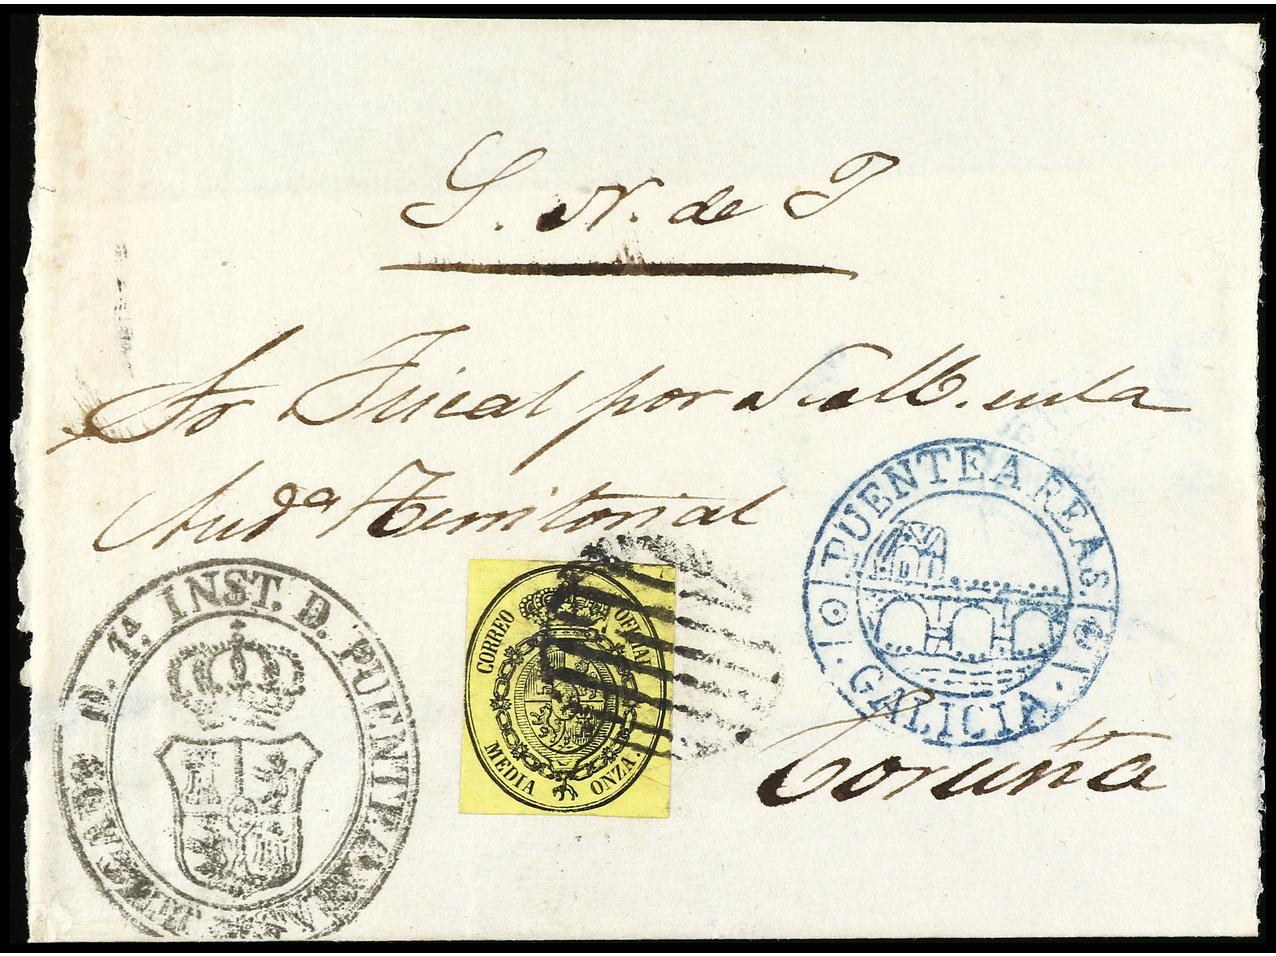 S. N. de J
Sor Fiscal por S. M. en la
Auda Territorial
PUENTEAREAS
GALICIA
JUZGADO D. 1ª. INST. D. PUENTEAREAS
CORREO OFICIAL
MEDIA ONZA
Coruña